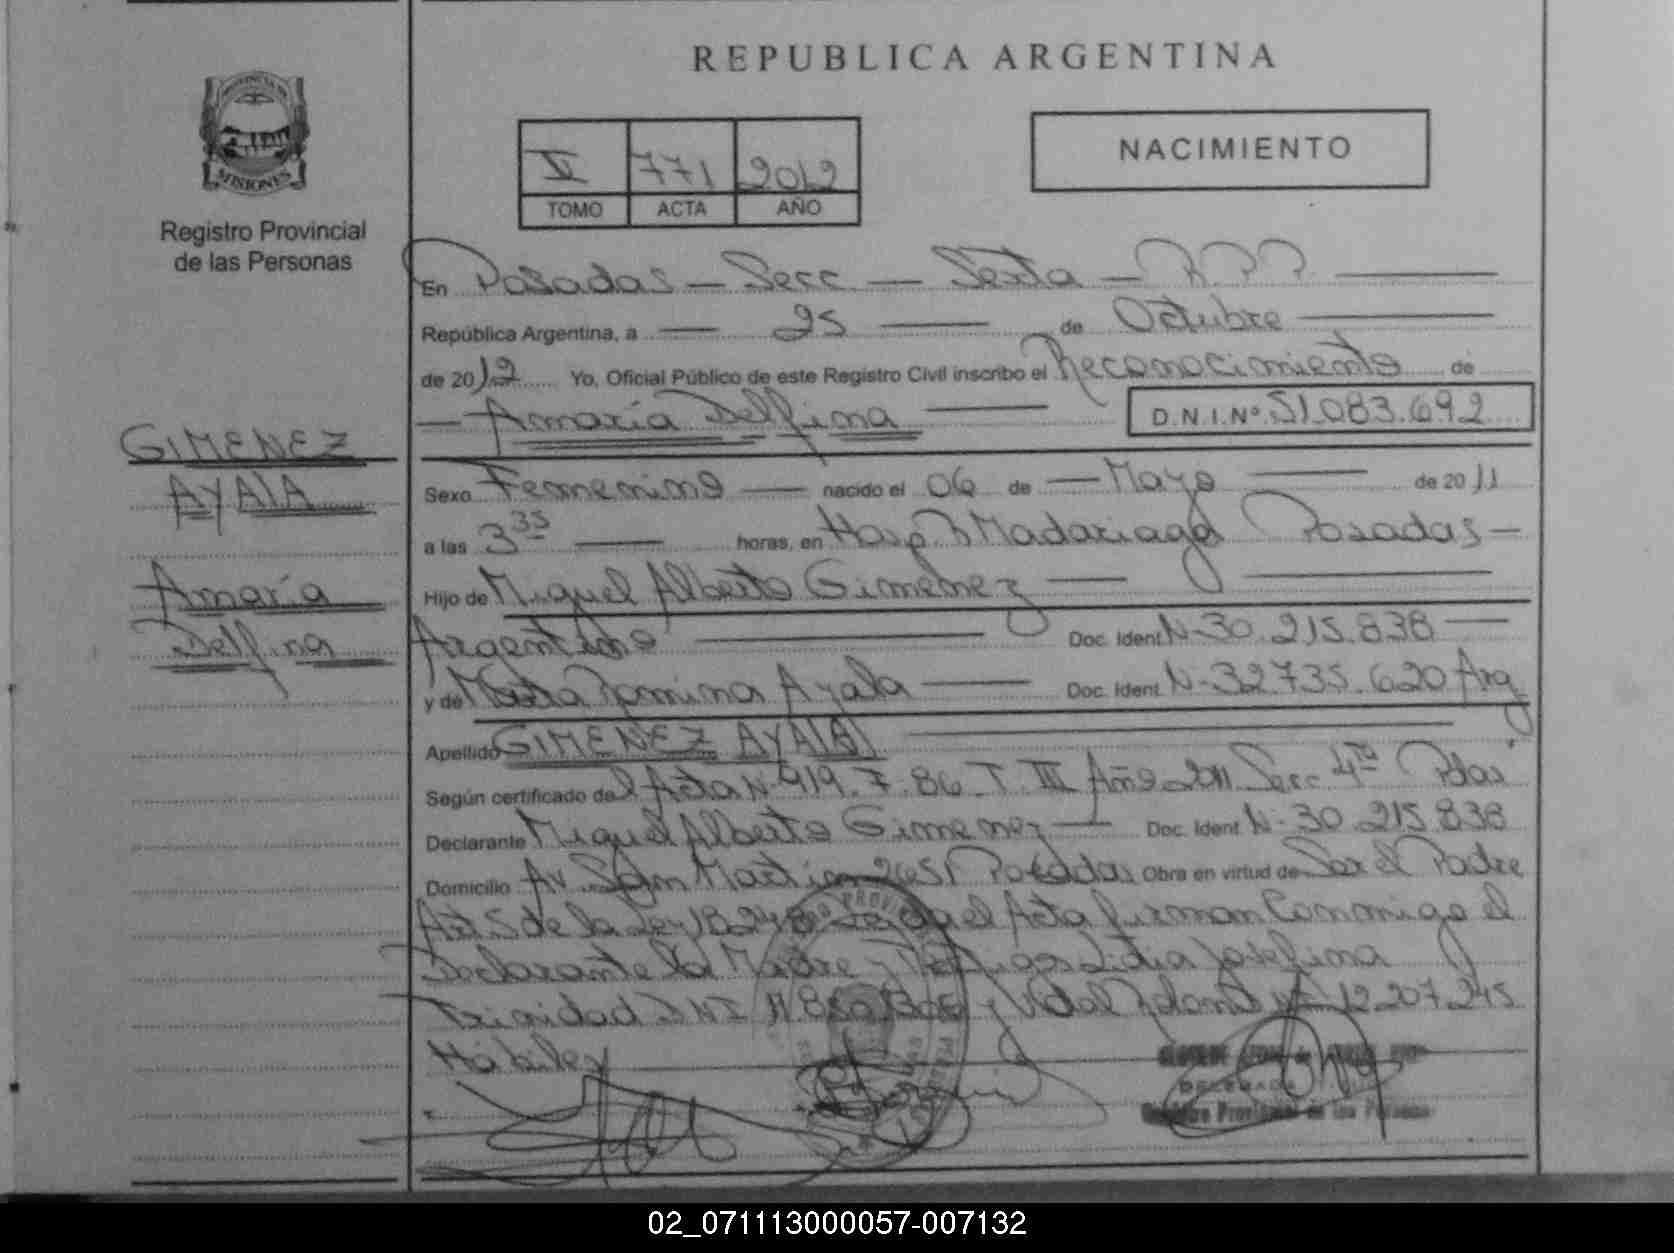 PROVINCIA DE
MISIONES
Registro Provincial
de las Personas
GIMENEZ
AYALA
Amaría
Delfina
REPUBLICA ARGENTINA
V 771 2012
TOMO ACTA AÑO
NACIMIENTO
En Posadas - Secc - Sexta - R.P.P.
República Argentina, a 25 de Octubre
de 2012 Yo, Oficial Público de este Registro Civil inscribo el Reconocimiento de
Amaría Delfina D.N.I.Nº 51.083.692
Sexo Femenino nacido el 06 de Mayo de 2011
a las 3 35 horas, en Hosp R Madariaga Posadas -
Hijo de Miguel Alberto Gimenez
Argentino Doc. Ident N- 30.215.838
y de Ramina Ayala Doc. Ident. N- 32735.620 Arg
Apellido GIMENEZ AYALA
Según certificado del Acta N- 919. F. 86. T III Año 2011 Secc 4ta Pdas
Declarante Miguel Alberto Gimenez Doc. Ident N- 30.215.838
Domicilio Av San Martin Posadas Obra en virtud de Ser el Padre
Art 5 de la Ley 18.248 el Acta firman Conmigo el
Declarante la Madre y Testigos Lidia Josefina
Trinidad DNI N y Vidal 12.207.245
Hábiles
DELEGADA
Registro Provincial de las Personas
02_071113000057-007132